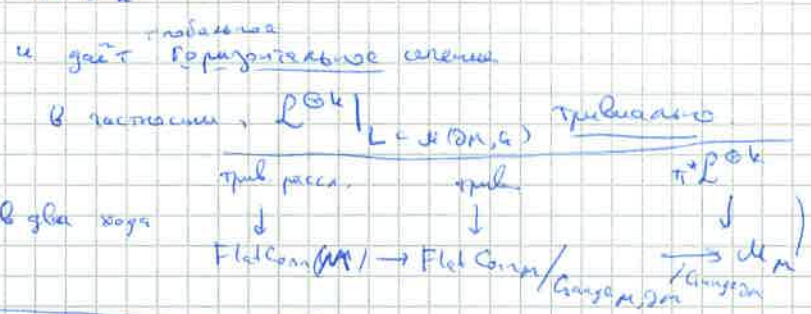 глобальное
и даёт горизонтальное сечение
В частности, ℒ^{⊗k}|_{L ⊂ M(∂M, G)} тривиально
трив. рассл. трив. π*ℒ^{⊗k}
в два хода ↓ ↓ ↓ )
FlatConn(M) → FlatConn_M / Gauge_{M,∂M} → /Gauge_{∂M} M_M